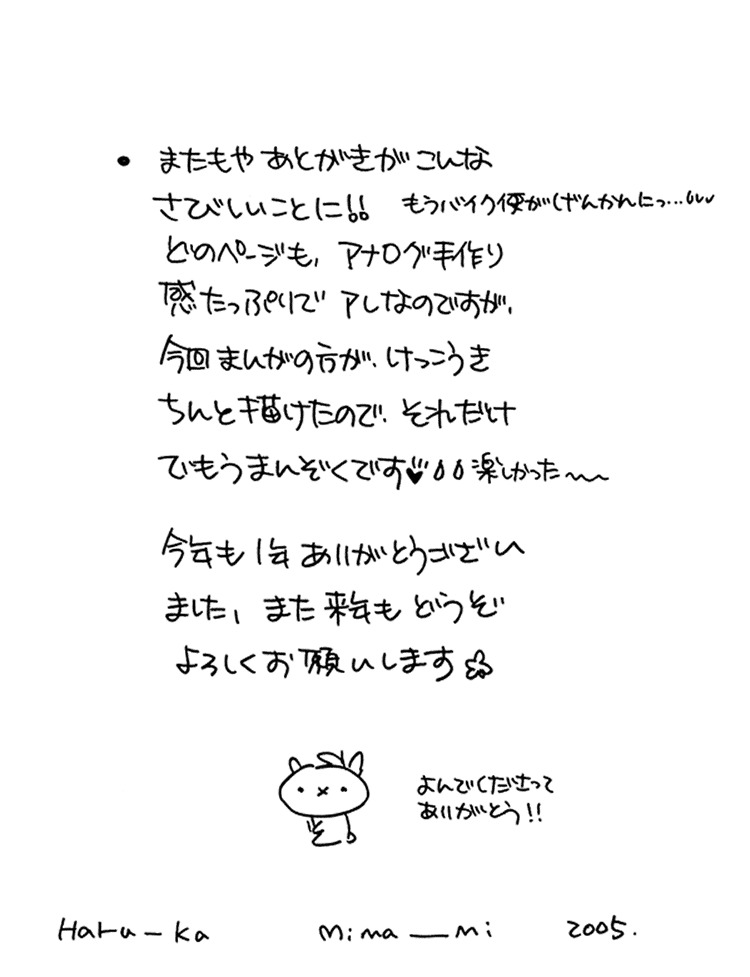 • またもや あとがきが こんな
さびしいことに!! もうバイク便がげんかれにっ…
どのページも、アナログ手作り
感たっぷりで アレなのですが、
今回まんがの方が、けっこうき
ちんと描けたので、それだけ
でもうまんぞくです♥ 楽しかった〜〜
今年も1年ありがとうござい
ました、また来年もどうぞ
よろしくお願いします
よんでくださって
ありがとう!!
Haru-ka Mina__mi 2005.